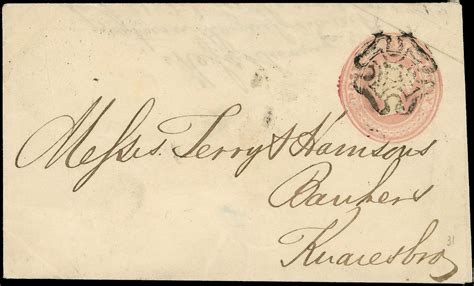 Messrs. Terry & Harrisons
Bankers
Knaresbro